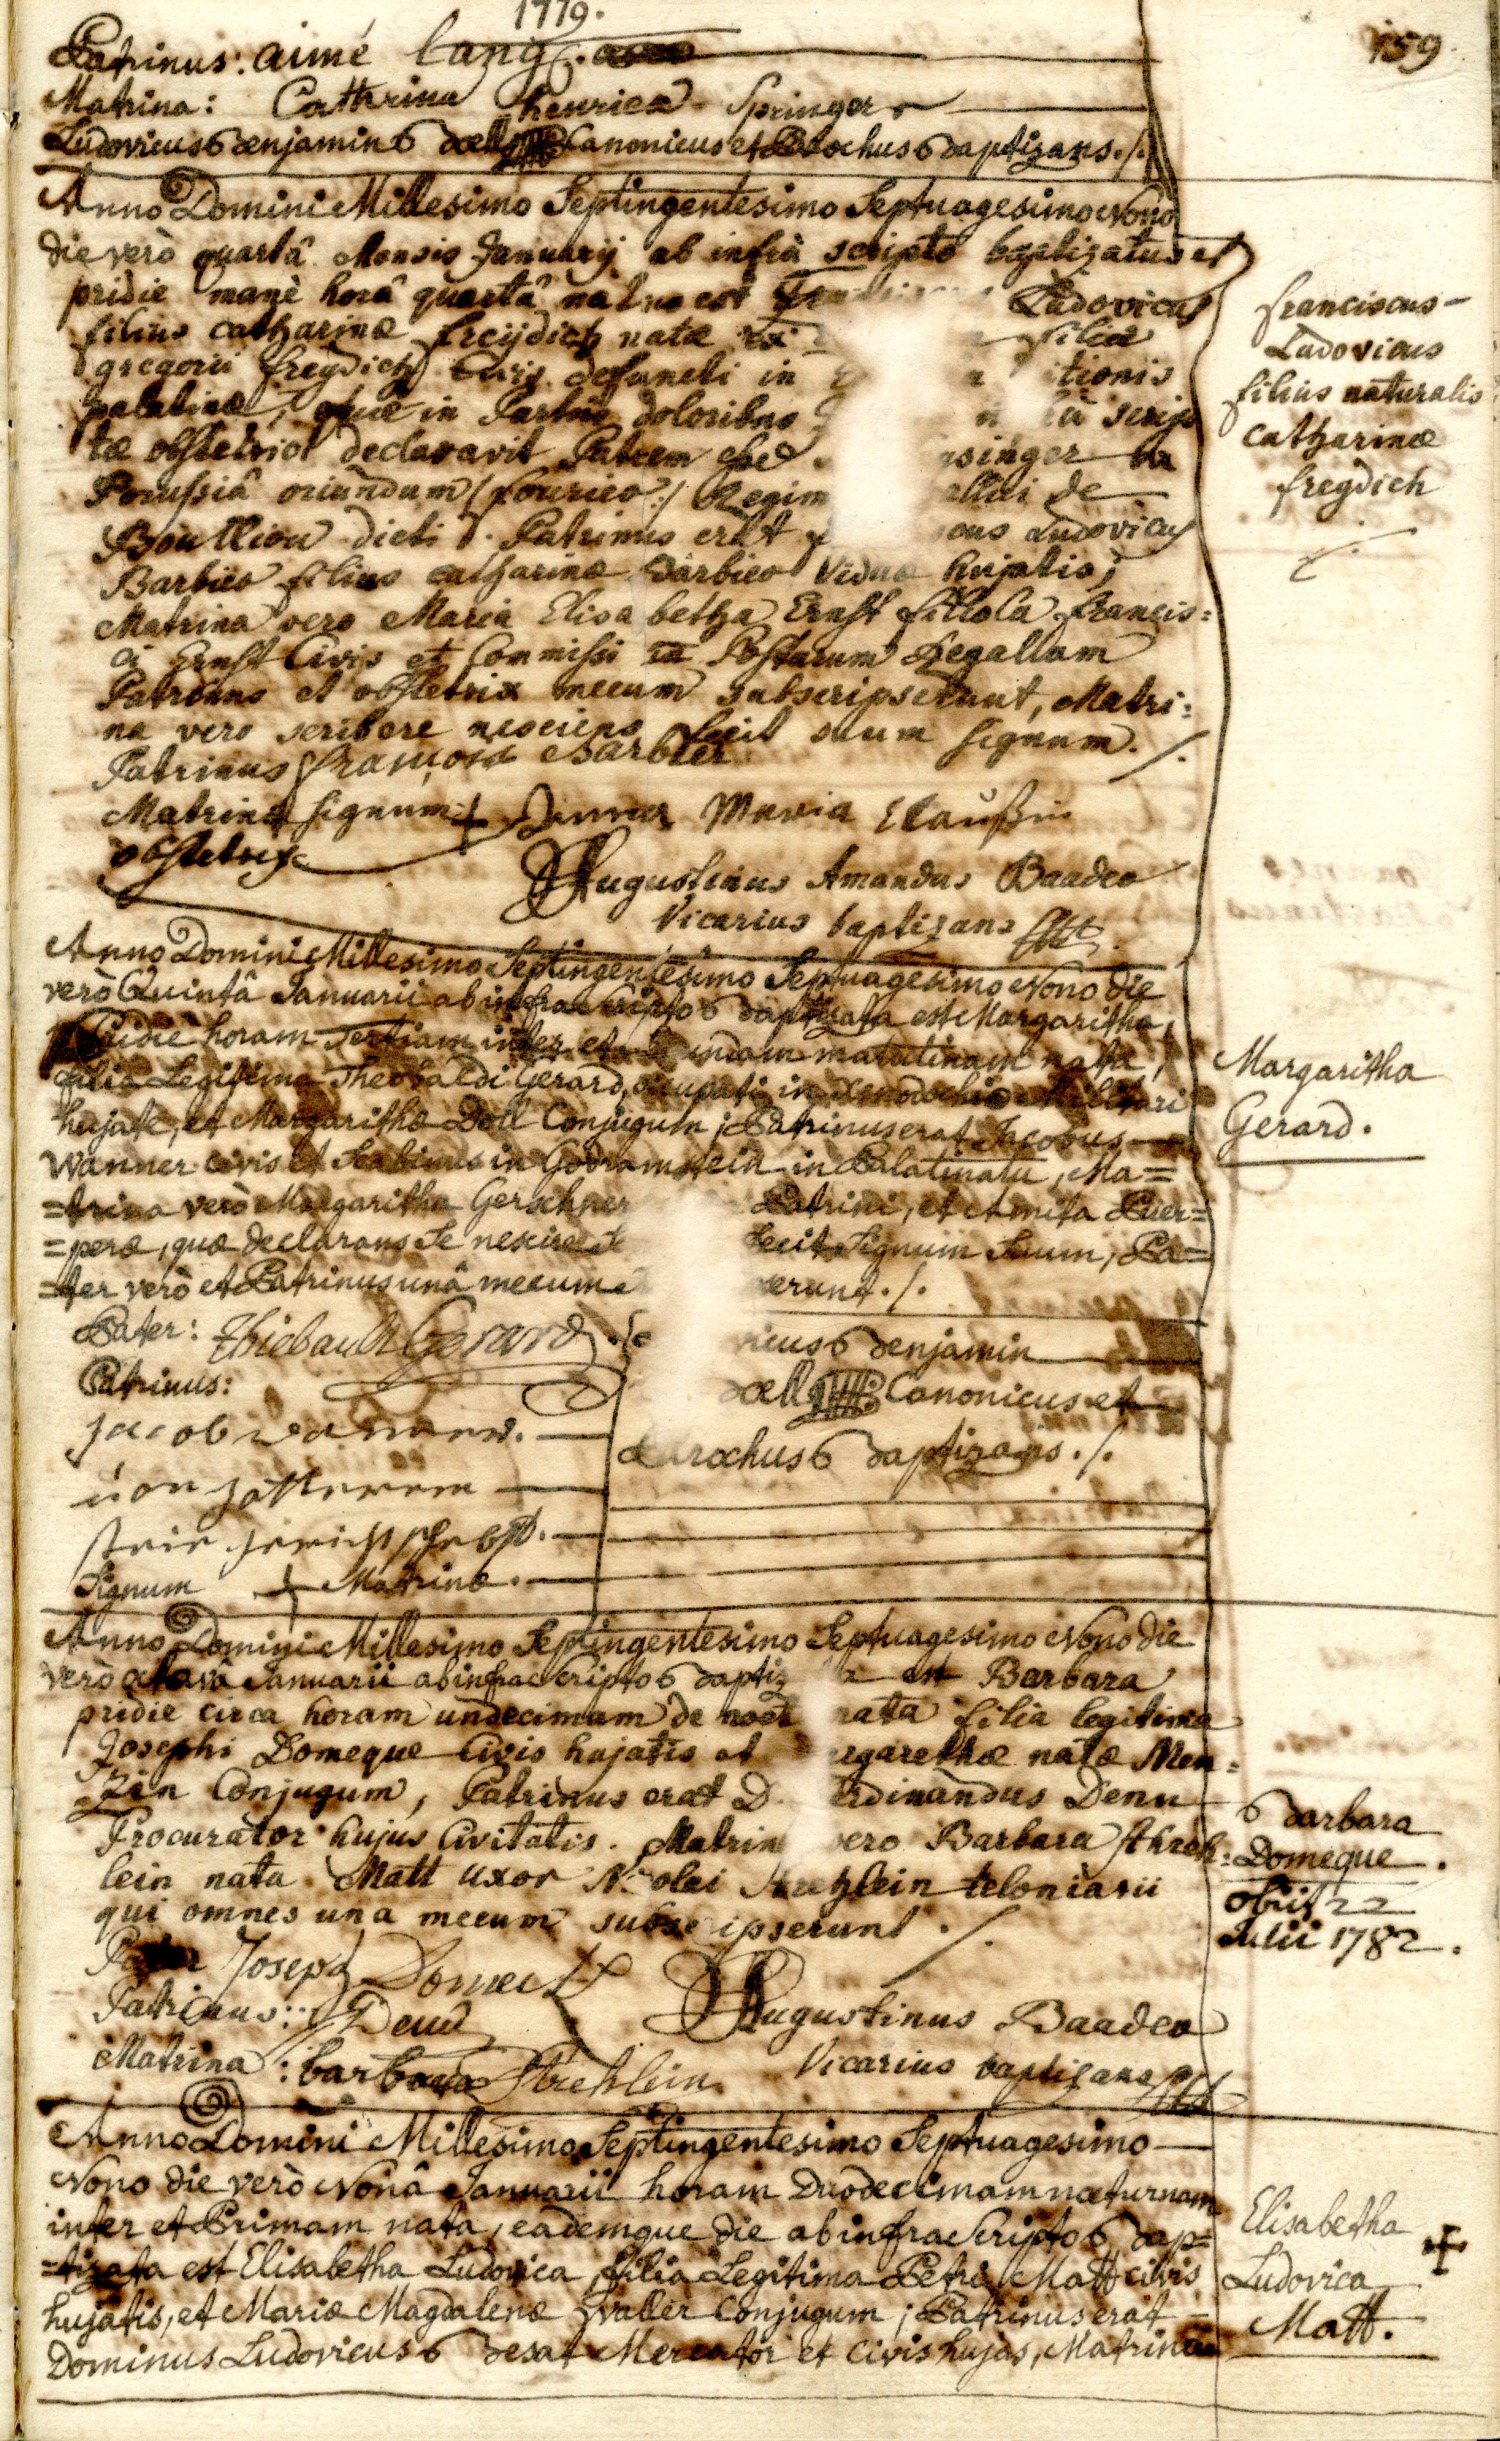 1779.
159
Patrinus: aimé Lang
Matrina: Catherina henrica Springer
Ludovicus Benjamin Doell Canonicus et Parochus Baptizans ./.
Anno Domini Millesimo Septingentesimo Septuagesimo Nono
die verò quartâ Mensis Januarij ab infrà scripto baptizatus et
pridie manè horâ quartâ natus est Ludovicus
filius catharinæ freijdich natæ ex filia
gregorii freydich Civis defuncti in itionis
palatinæ, quæ in Partûs doloribus scrip
tæ obstetrici declaravit Patrem esse singer in
Porussiâ oriundum (fourier) Regim de
Bouillion dicti. Patrinus erat Ludovicus
Barbier filius catharinæ Barbier Viduæ hujatis;
Matrina vero Maria Elisabetha Ernst filiola francis=
ci Ernst Civis et Commissi Postarum Regalium
Patrinus et obstetrix mecum subscripserunt, Matri=
na vero scribere nesciens fecit suum signum. /.
Patrinus françois Barbier
Matrina signum + Anna Maria Claußin
obstetrix
Augustinus Amandus Baader
Vicarius baptizans
franciscus-
Ludovicus
filius naturalis
catharinæ
freydich
Anno Domini Millesimo Septingentesimo Septuagesimo Nono die
verò Quintâ Januarii ab infrascripto Baptizata est Margaritha,
Pridie horam Tertiam inter et matutinam nata,
filia Legitima Theobaldi Gerard, occupati in Xenodochio Militari
hujate, et Margarithæ Doll Conjugum; Patrinus erat Jacobus
Wanner civis et Scabinus in Godramstein in Palatinatu, Ma=
=trina verò Margaritha Gerschner Patrini, et Amita Puer=
=peræ, quæ declarans Se nescire fecit Signum Suum, Pa=
=ter verò et Patrinus unâ mecum erunt ./.
Pater: Thiebault Gerard
Patrinus:
Signum + Matrinæ.
Benjamin
Doell Canonicus et
Parochus Baptizans ./.
Margaritha
Gerard.
Anno Domini Millesimo Septingentesimo Septuagesimo Nono die
verò octavâ Januarii ab infrascripto est Barbara
pridie circa horam undecimam de nata filia legitima
Josephi Domeque Civis hujatis et natæ Men=
zin Conjugum, Patrinus erat D. Denu
Procurator hujus Civitatis. Matrina vero Barbara Streh=
lein nata Matt uxor Nicolai Strehlein teloniarii
qui omnes una mecum subscripserunt ./.
Pater Joseph Domeck
Patrinus: Denu
Matrina: barbara Strehlein
Augustinus Baader
Vicarius baptizans
Barbara
Domeque.
obiit 22
Julii 1782.
Anno Domini Millesimo Septingentesimo Septuagesimo
Nono die verò Nonâ Januarii horam Duodecimam nocturnam
inter et Primam nata, eademque die ab infrascripto Bap=
=tizata est Elisabetha Ludovica, filia Legitima Petri Matt civis
hujatis, et Mariæ Magdalenæ Conjugum; Patrinus erat
Dominus Ludovicus Besat Mercator et civis hujas, Matrina
Elisabetha
Ludovica
Matt.